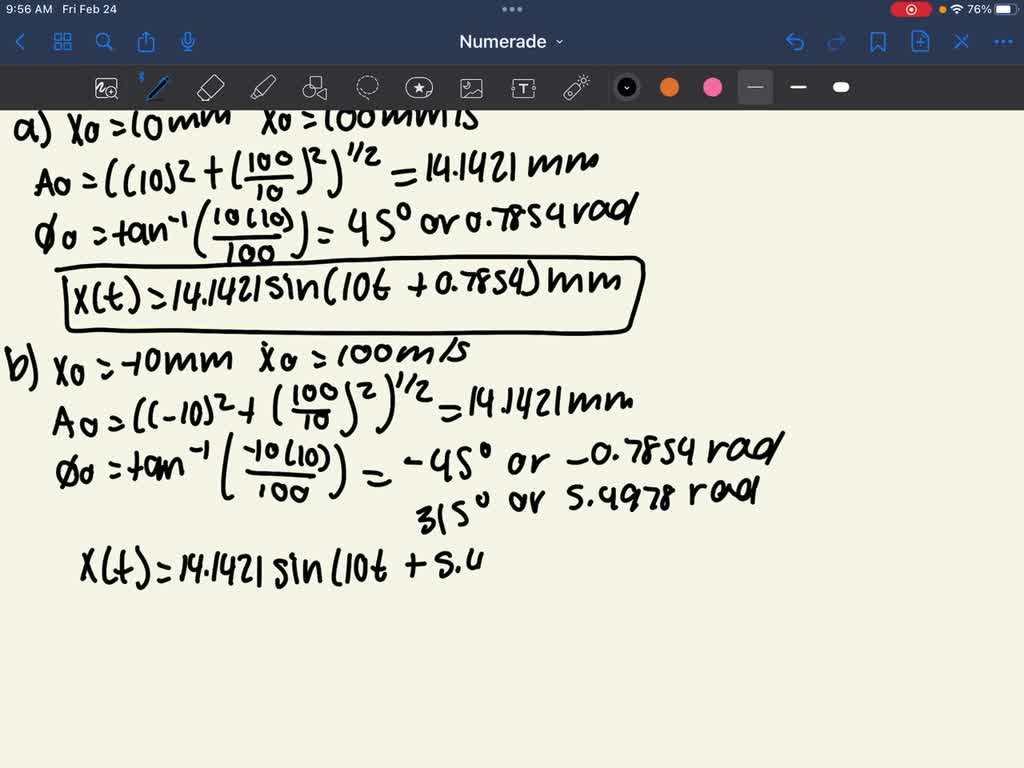 9:56 AM Fri Feb 24 76%
Numerade
a) x₀ = 10 mm ẋ₀ = 100 mm/s
A₀ = ((10)² + (100/10)²)^1/2 = 14.1421 mm
ϕ₀ = tan⁻¹(10(10)/100) = 45° or 0.7854 rad
x(t) = 14.1421 sin(10t + 0.7854) mm
b) x₀ = -10 mm ẋ₀ = 100 m/s
A₀ = ((-10)² + (100/10)²)^1/2 = 14.1421 mm
ϕ₀ = tan⁻¹(-10(10)/100) = -45° or -0.7854 rad
315° or 5.4978 rad
x(t) = 14.1421 sin(10t + 5.4